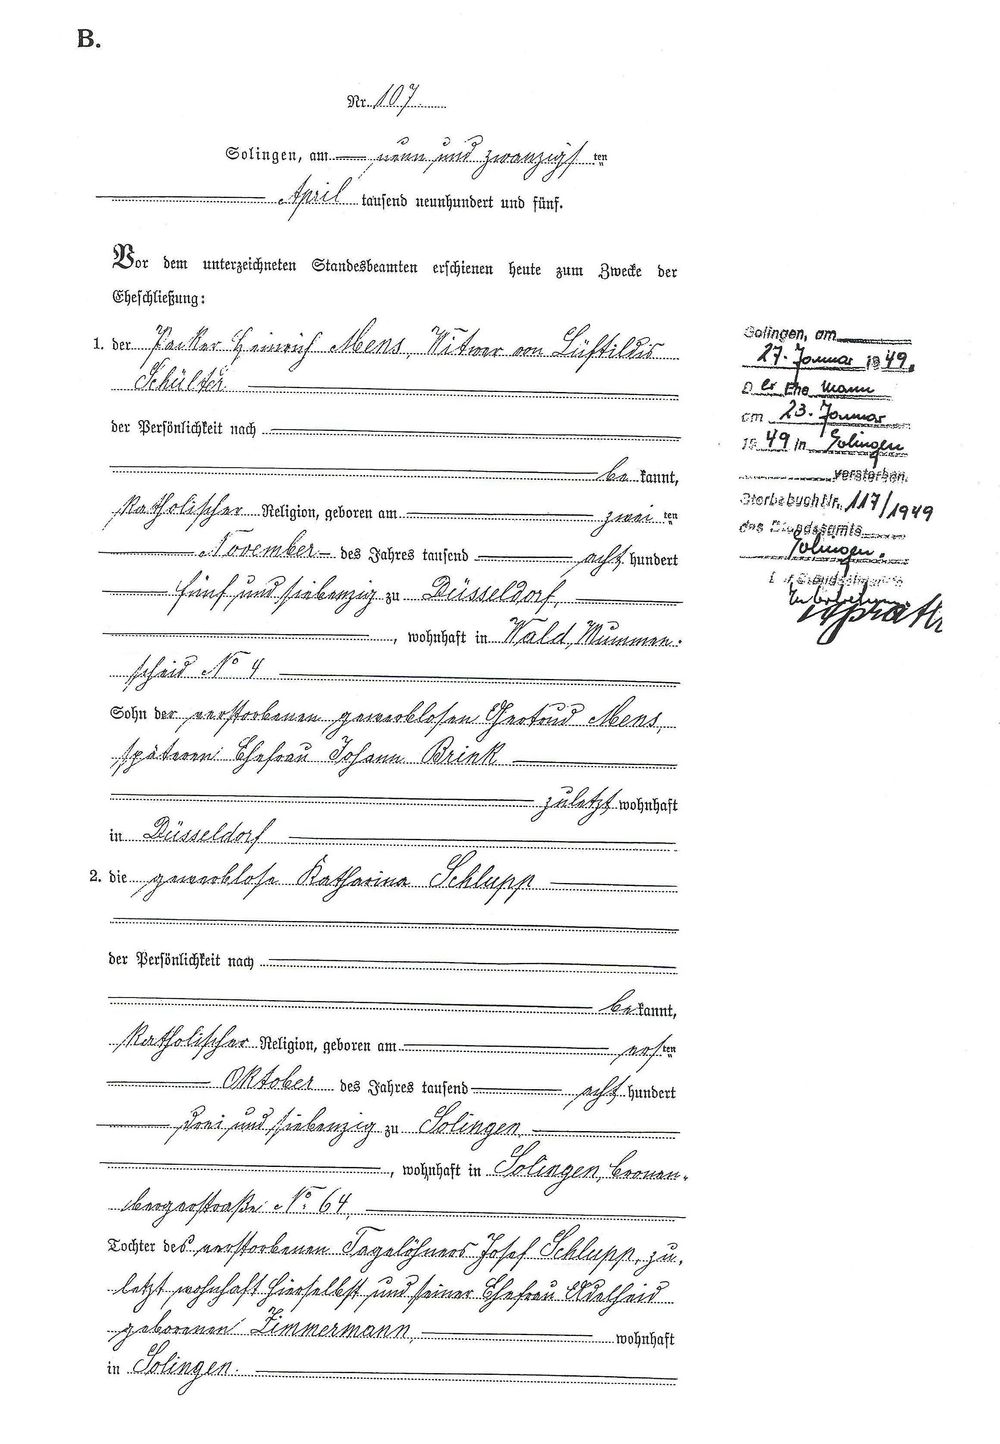 B.
Nr. 107.
Solingen, am neun und zwanzigsten
April tausend neunhundert und fünf.
Vor dem unterzeichneten Standesbeamten erschienen heute zum Zwecke der
Eheschließung:
1. der Packer Heinrich Mens, Witwer von Lüftildis
Schülter
der Persönlichkeit nach
bekannt,
katholischer Religion, geboren am zweiten
November des Jahres tausend achthundert
fünf und siebenzig zu Düsseldorf,
, wohnhaft in Wald, Mummen:
scheid No 4
Sohn der verstorbenen gewerblosen Gertrud Mens,
späteren Ehefrau Johann Brink
zuletzt wohnhaft
in Düsseldorf
2. die gewerblose Katharina Schlupp
der Persönlichkeit nach
bekannt,
katholischer Religion, geboren am ersten
Oktober des Jahres tausend achthundert
drei und siebenzig zu Solingen,
, wohnhaft in Solingen, Cronen-
bergerstraße No. 64,
Tochter des verstorbenen Tagelöhners Josef Schlupp, zu-
letzt wohnhaft hierselbst und seiner Ehefrau Adelheid
geborenen Zimmermann, wohnhaft
in Solingen.
Solingen, am
27. Januar 1949.
Der Ehemann
am 23. Januar
1949 in Solingen
verstorben.
Sterbebuch Nr. 117/1949
des Standesamts
Solingen.
Der Standesbeamte